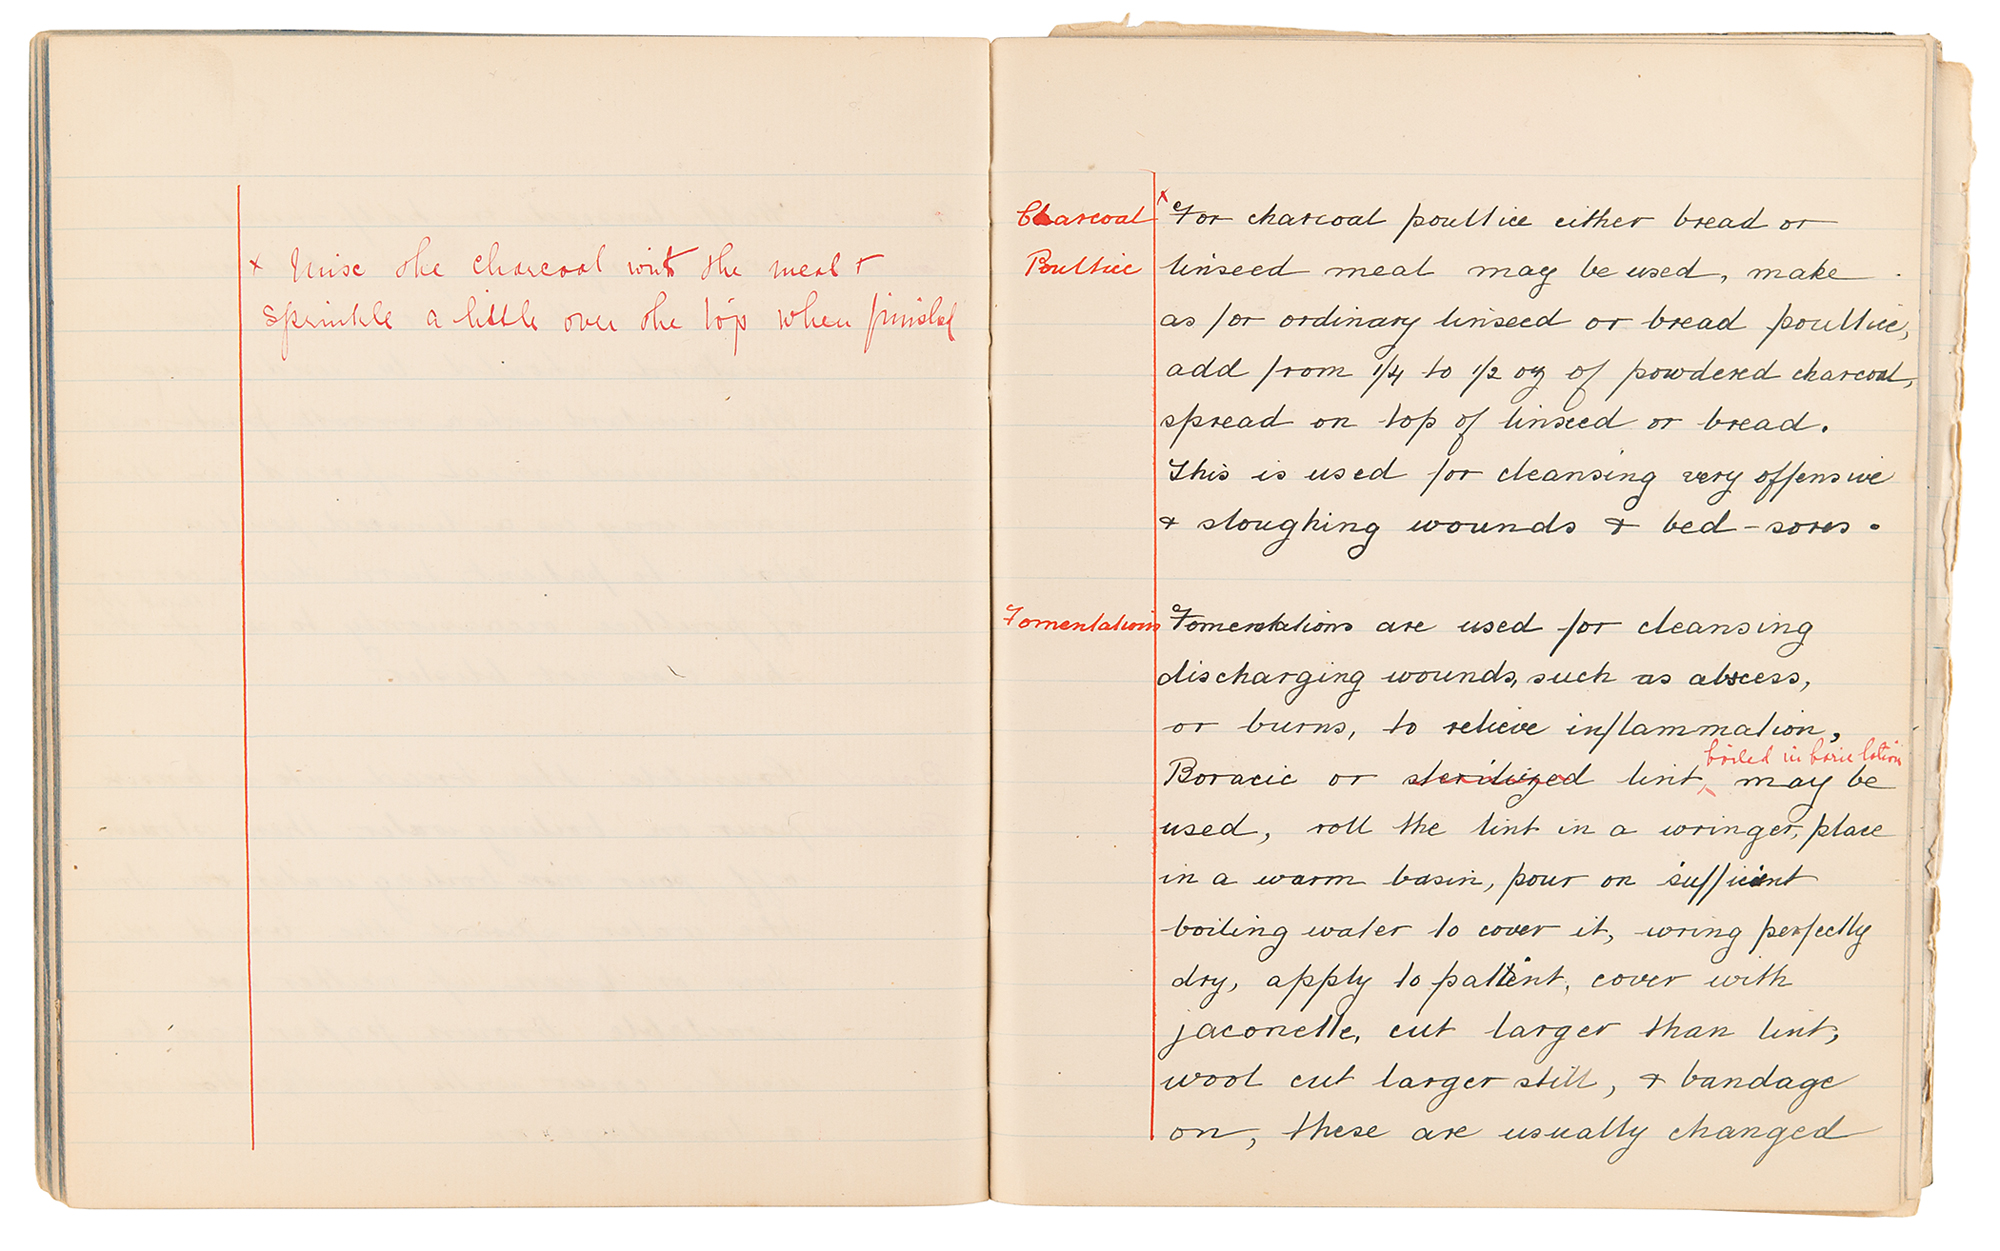 x Mix the charcoal with the meal &
sprinkle a little over the top when finished
Charcoal
Poultice
x For charcoal poultice either bread or
linseed meal may be used, make
as for ordinary linseed or bread poultice,
add from 1/4 to 1/2 oz of powdered charcoal,
spread on top of linseed or bread.
This is used for cleansing very offensive
& sloughing wounds & bed-sores.
Fomentations
Fomentations are used for cleansing
discharging wounds, such as abscess,
or burns, to relieve inflammation,
boiled in boric lotion
Boracic or sterilized lint, may be
used, roll the lint in a wringer, place
in a warm basin, pour on sufficient
boiling water to cover it, wring perfectly
dry, apply to patient, cover with
jaconette, cut larger than lint,
wool cut larger still, & bandage
on, these are usually changed